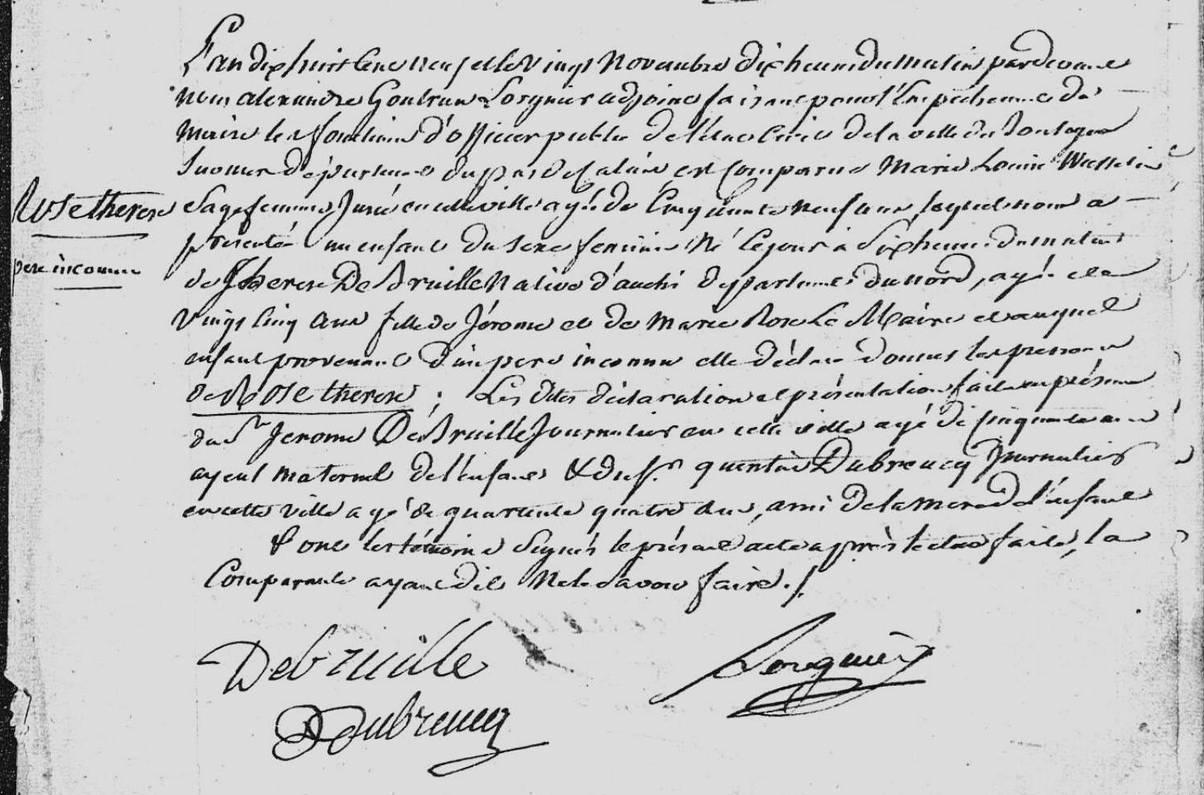 L'an dix huit cent neuf et le vingt Novembre dix heures du matin par devant
nous alexandre Gontran Lorgnier adjoint faisant pour l'Empechement de
Maire les fonctions d'officier public de l'état Civil de la ville de Boulogne
Sur mer département du pas de Calais est Comparue Marie Louise Wasselin
Rose therese
Sage femme Jurée en cette ville agée de Cinquante neuf ans laquelle nous a
présenté un enfant du sexe feminin Né Ce jour à Six heures du matin
pere inconnu
de Therese De Bruille Native d'auchi departement du nord, agée de
vingt Cinq ans fille de Jérome et de Marie Rose Le Maire et auquel
enfant provenant d'un pere inconnu elle déclare donner les prenoms
de Rose therese ; Les dites déclaration et présentation faites en présence
du Sr Jerome DeBruille Journalier en cette ville agé de cinquante ans
ayeul maternel de l'enfant & du Sr quentin Dubreucq Journalier
en cette ville agé de quarante quatre ans, ami de la mere de l'enfant
& ont les témoins Signés le présent acte après lecture faite, la
Comparante ayant dit Ne le savoir faire ./.
Debruille
Lorgnier
Dubreucq